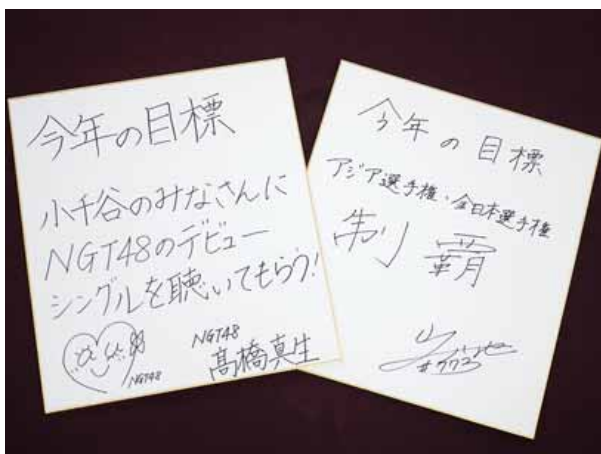 今年の目標
小千谷のみなさんに
NGT48のデビュー
シングルを聴いてもらう!
NGT48
NGT48
髙橋真生
今年の目標
アジア選手権・全日本選手権
制覇
#773